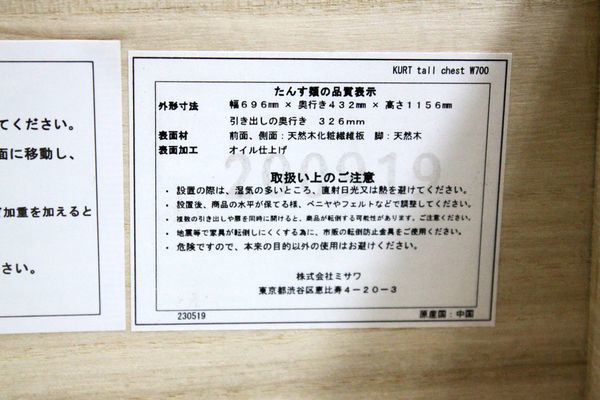 てください。
面に移動し、
加重を加えると
さい。
KURT tall chest W700
たんす類の品質表示
外形寸法 幅696mm × 奥行き432mm × 高さ1156mm
引き出しの奥行き 326mm
表面材 前面、側面:天然木化粧繊維板 脚:天然木
表面加工 オイル仕上げ
取扱い上のご注意
・設置の際は、湿気の多いところ、直射日光又は熱を避けてください。
・設置後、商品の水平が保てる様、ベニヤやフェルトなどで調整してください。
・複数の引き出しや扉を同時に開けると、商品が転倒する可能性があります。ご注意ください。
・地震等で家具が転倒しにくくする為に、市販の転倒防止金具をご使用ください。
・危険ですので、本来の目的以外の使用はお避けください。
株式会社ミサワ
東京都渋谷区恵比寿4-20-3
230519
原産国:中国